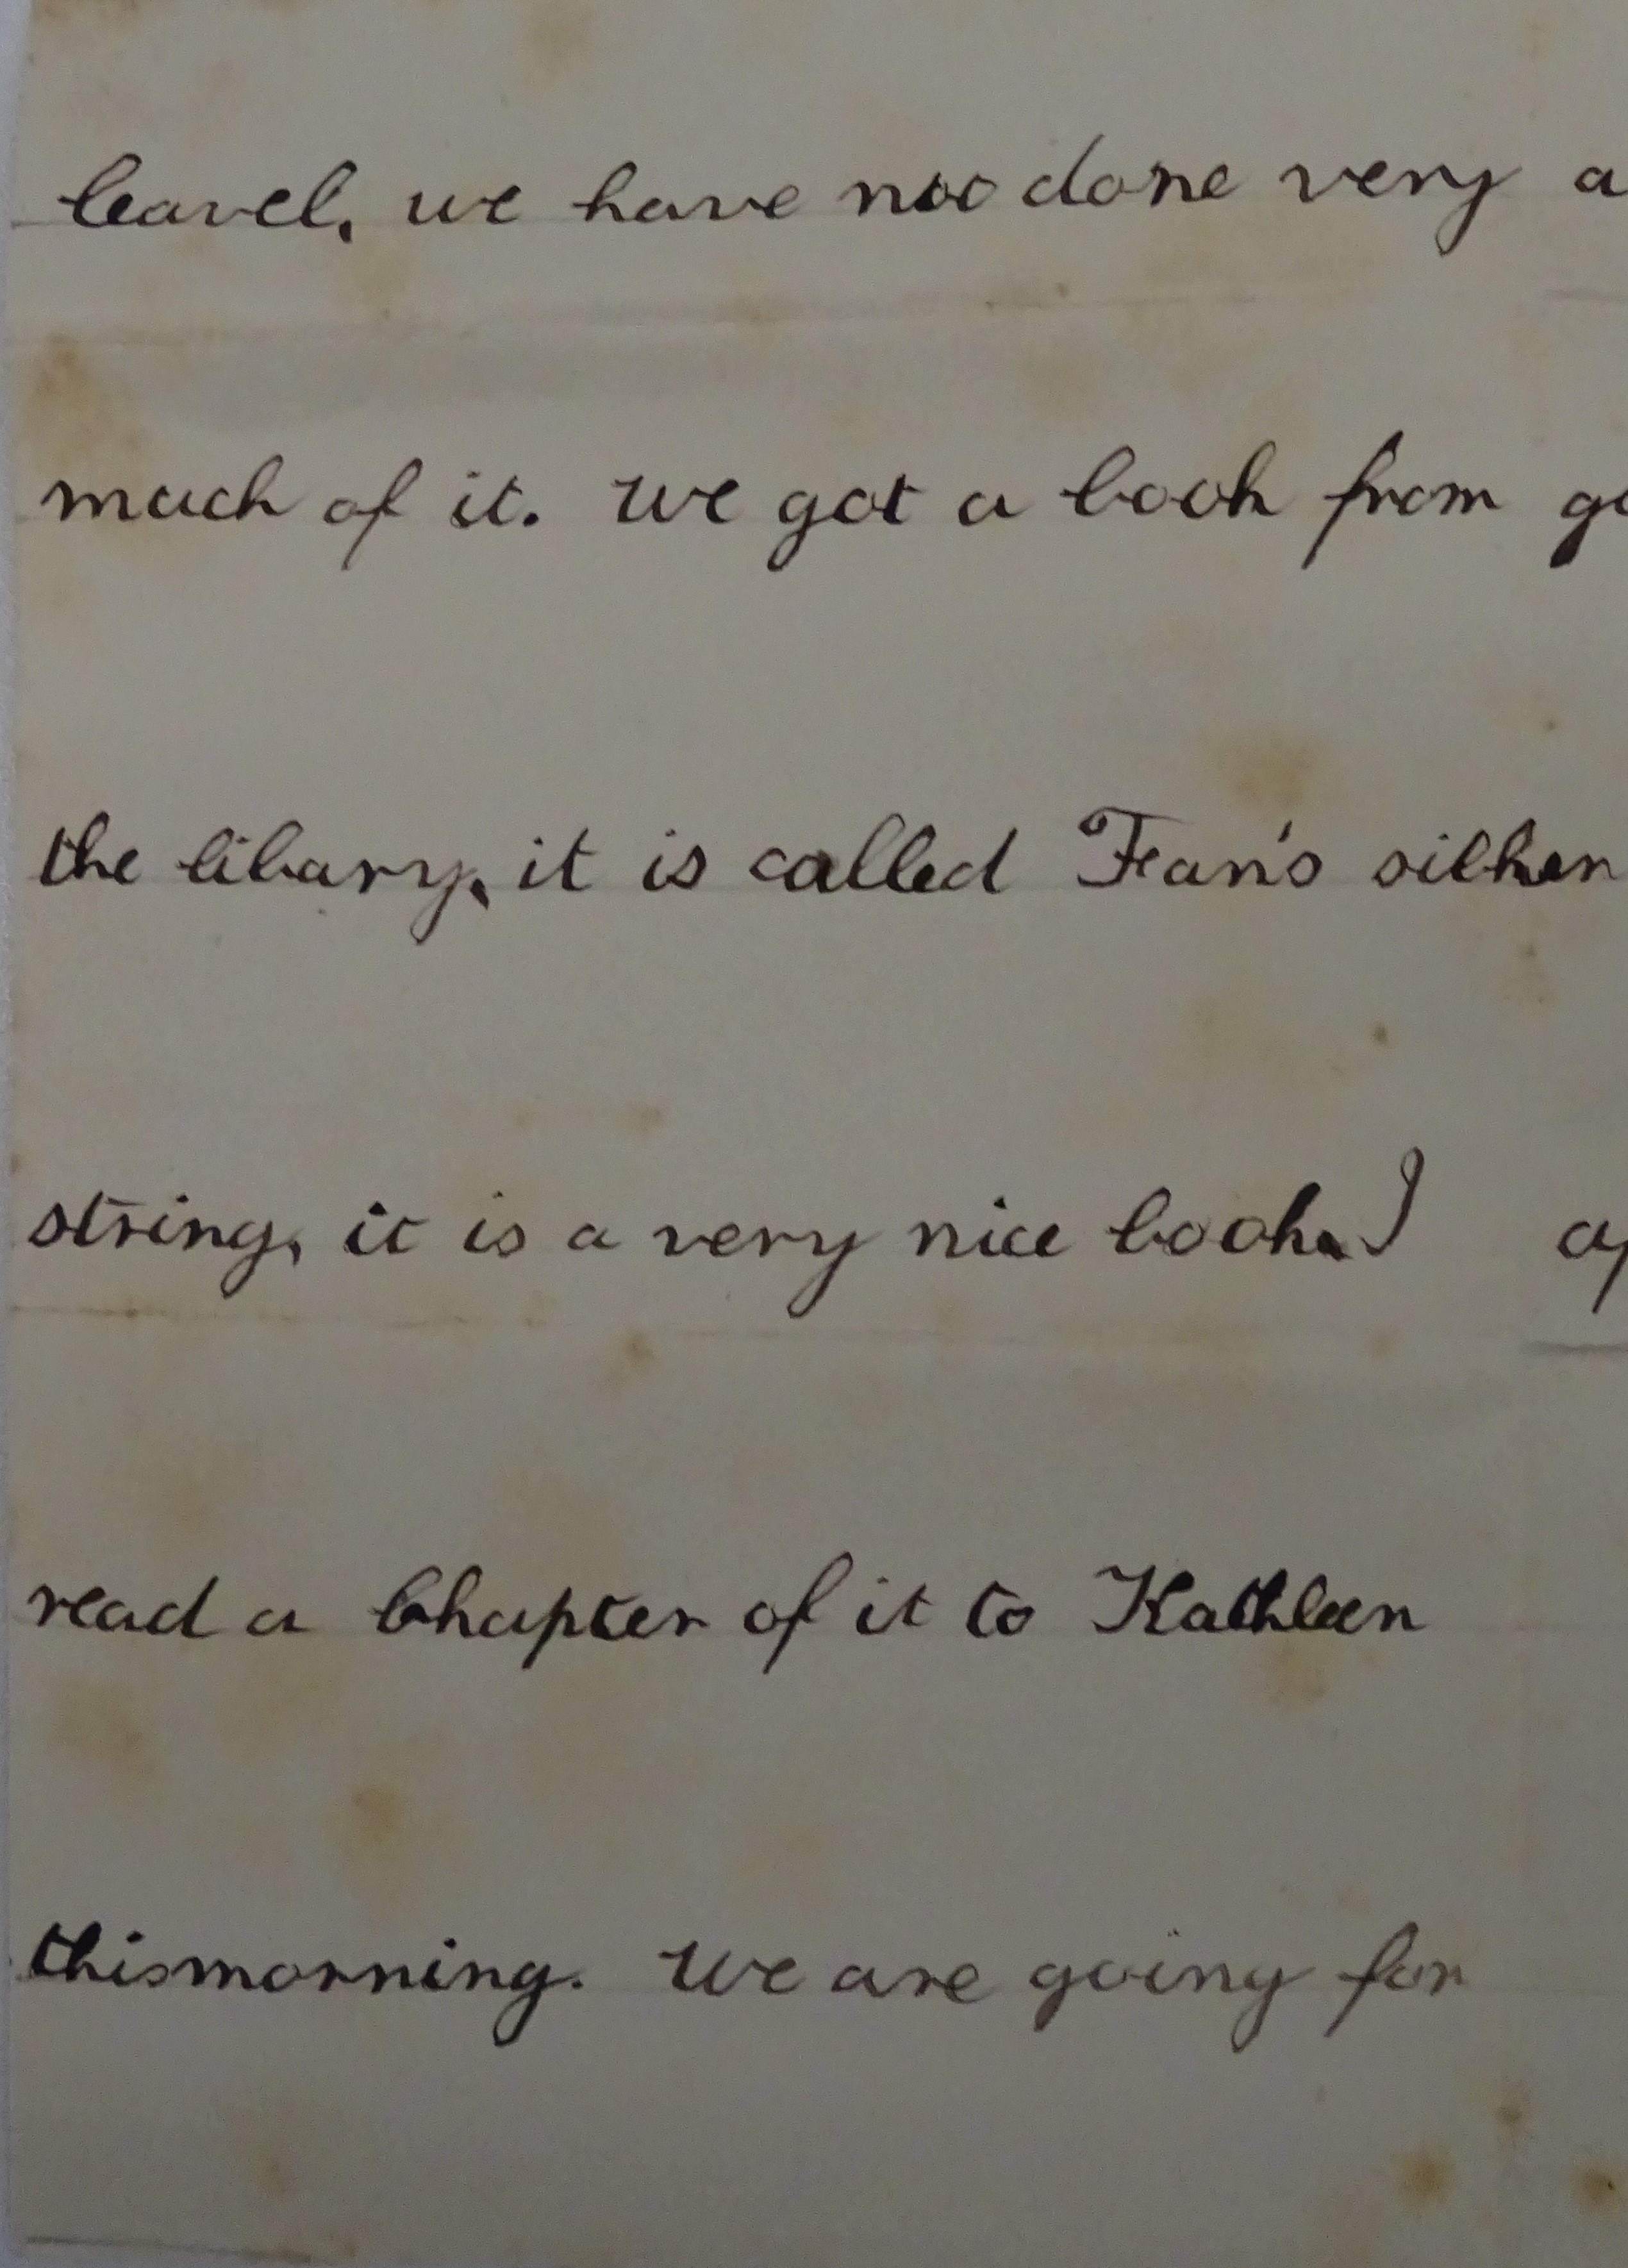 leavel, we have not done very a
much of it. We got a book from go
the libary, it is called Fean's silken
string, it is a very nice book. I ap
read a Chapter of it to Kathleen
thismorning. We are going for